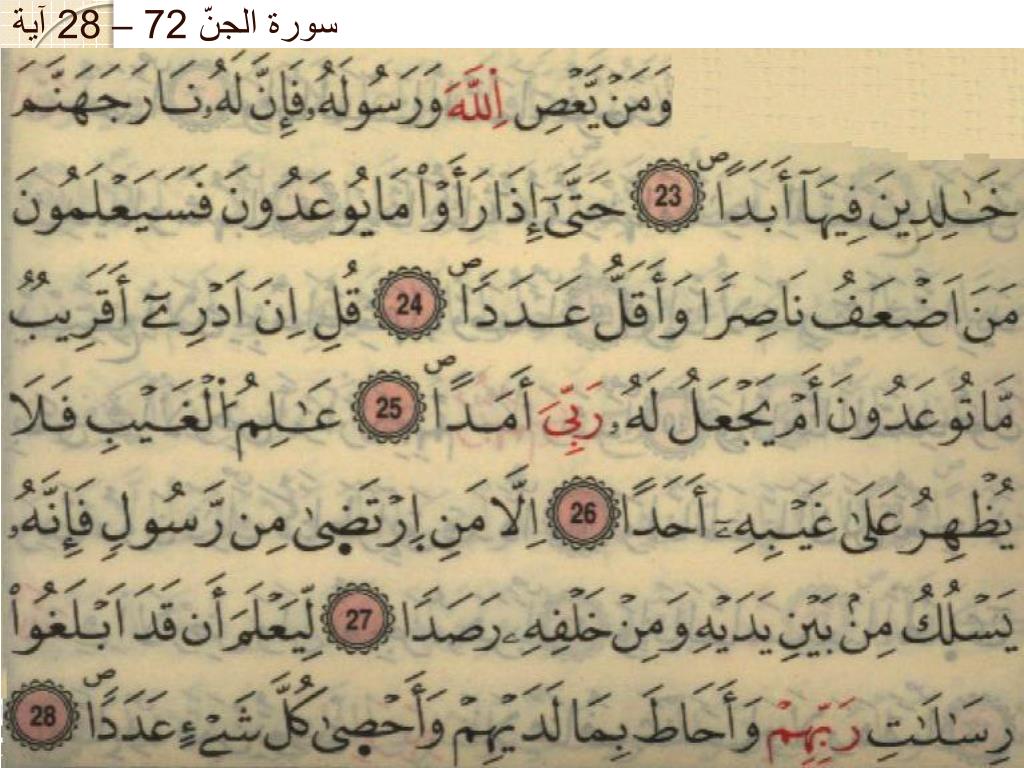 سورة الجنّ 72 – 28 آية
وَمَنْ يَّعْصِ اِ۬للَّهَ وَرَسُولَهُۥ فَإِنَّ لَهُۥ نَارَ جَهَنَّمَ
خَٰلِدِينَ فِيهَآ أَبَداًۖ 23 حَتَّىٰٓ إِذَا رَأَوْاْ مَا يُوعَدُونَ فَسَيَعْلَمُونَ
مَنَ اَضْعَفُ نَاصِراً وَأَقَلُّ عَدَداًۖ 24 قُلِ اِنَ اَدْرِےٓ أَقَرِيبٌ
مَّا تُوعَدُونَ أَمْ يَجْعَلُ لَهُۥ رَبِّيَ أَمَداًۖ 25 عَٰلِمُ اُ۬لْغَيْبِ فَلَا
يُظْهِرُ عَلَىٰ غَيْبِهِۦٓ أَحَداً 26 اِلَّا مَنِ اِ۪رْتَضٜىٰ مِن رَّسُولٍ فَإِنَّهُۥ
يَسْلُكُ مِنۢ بَيْنِ يَدَيْهِ وَمِنْ خَلْفِهِۦ رَصَداً 27 لِّيَعْلَمَ أَن قَدَ اَبْلَغُواْ
رِسَٰلَٰتِ رَبِّهِمْ وَأَحَاطَ بِمَا لَدَيْهِمْ وَأَحْصٜىٰ كُلَّ شَےْءٍ عَدَداًۖ 28